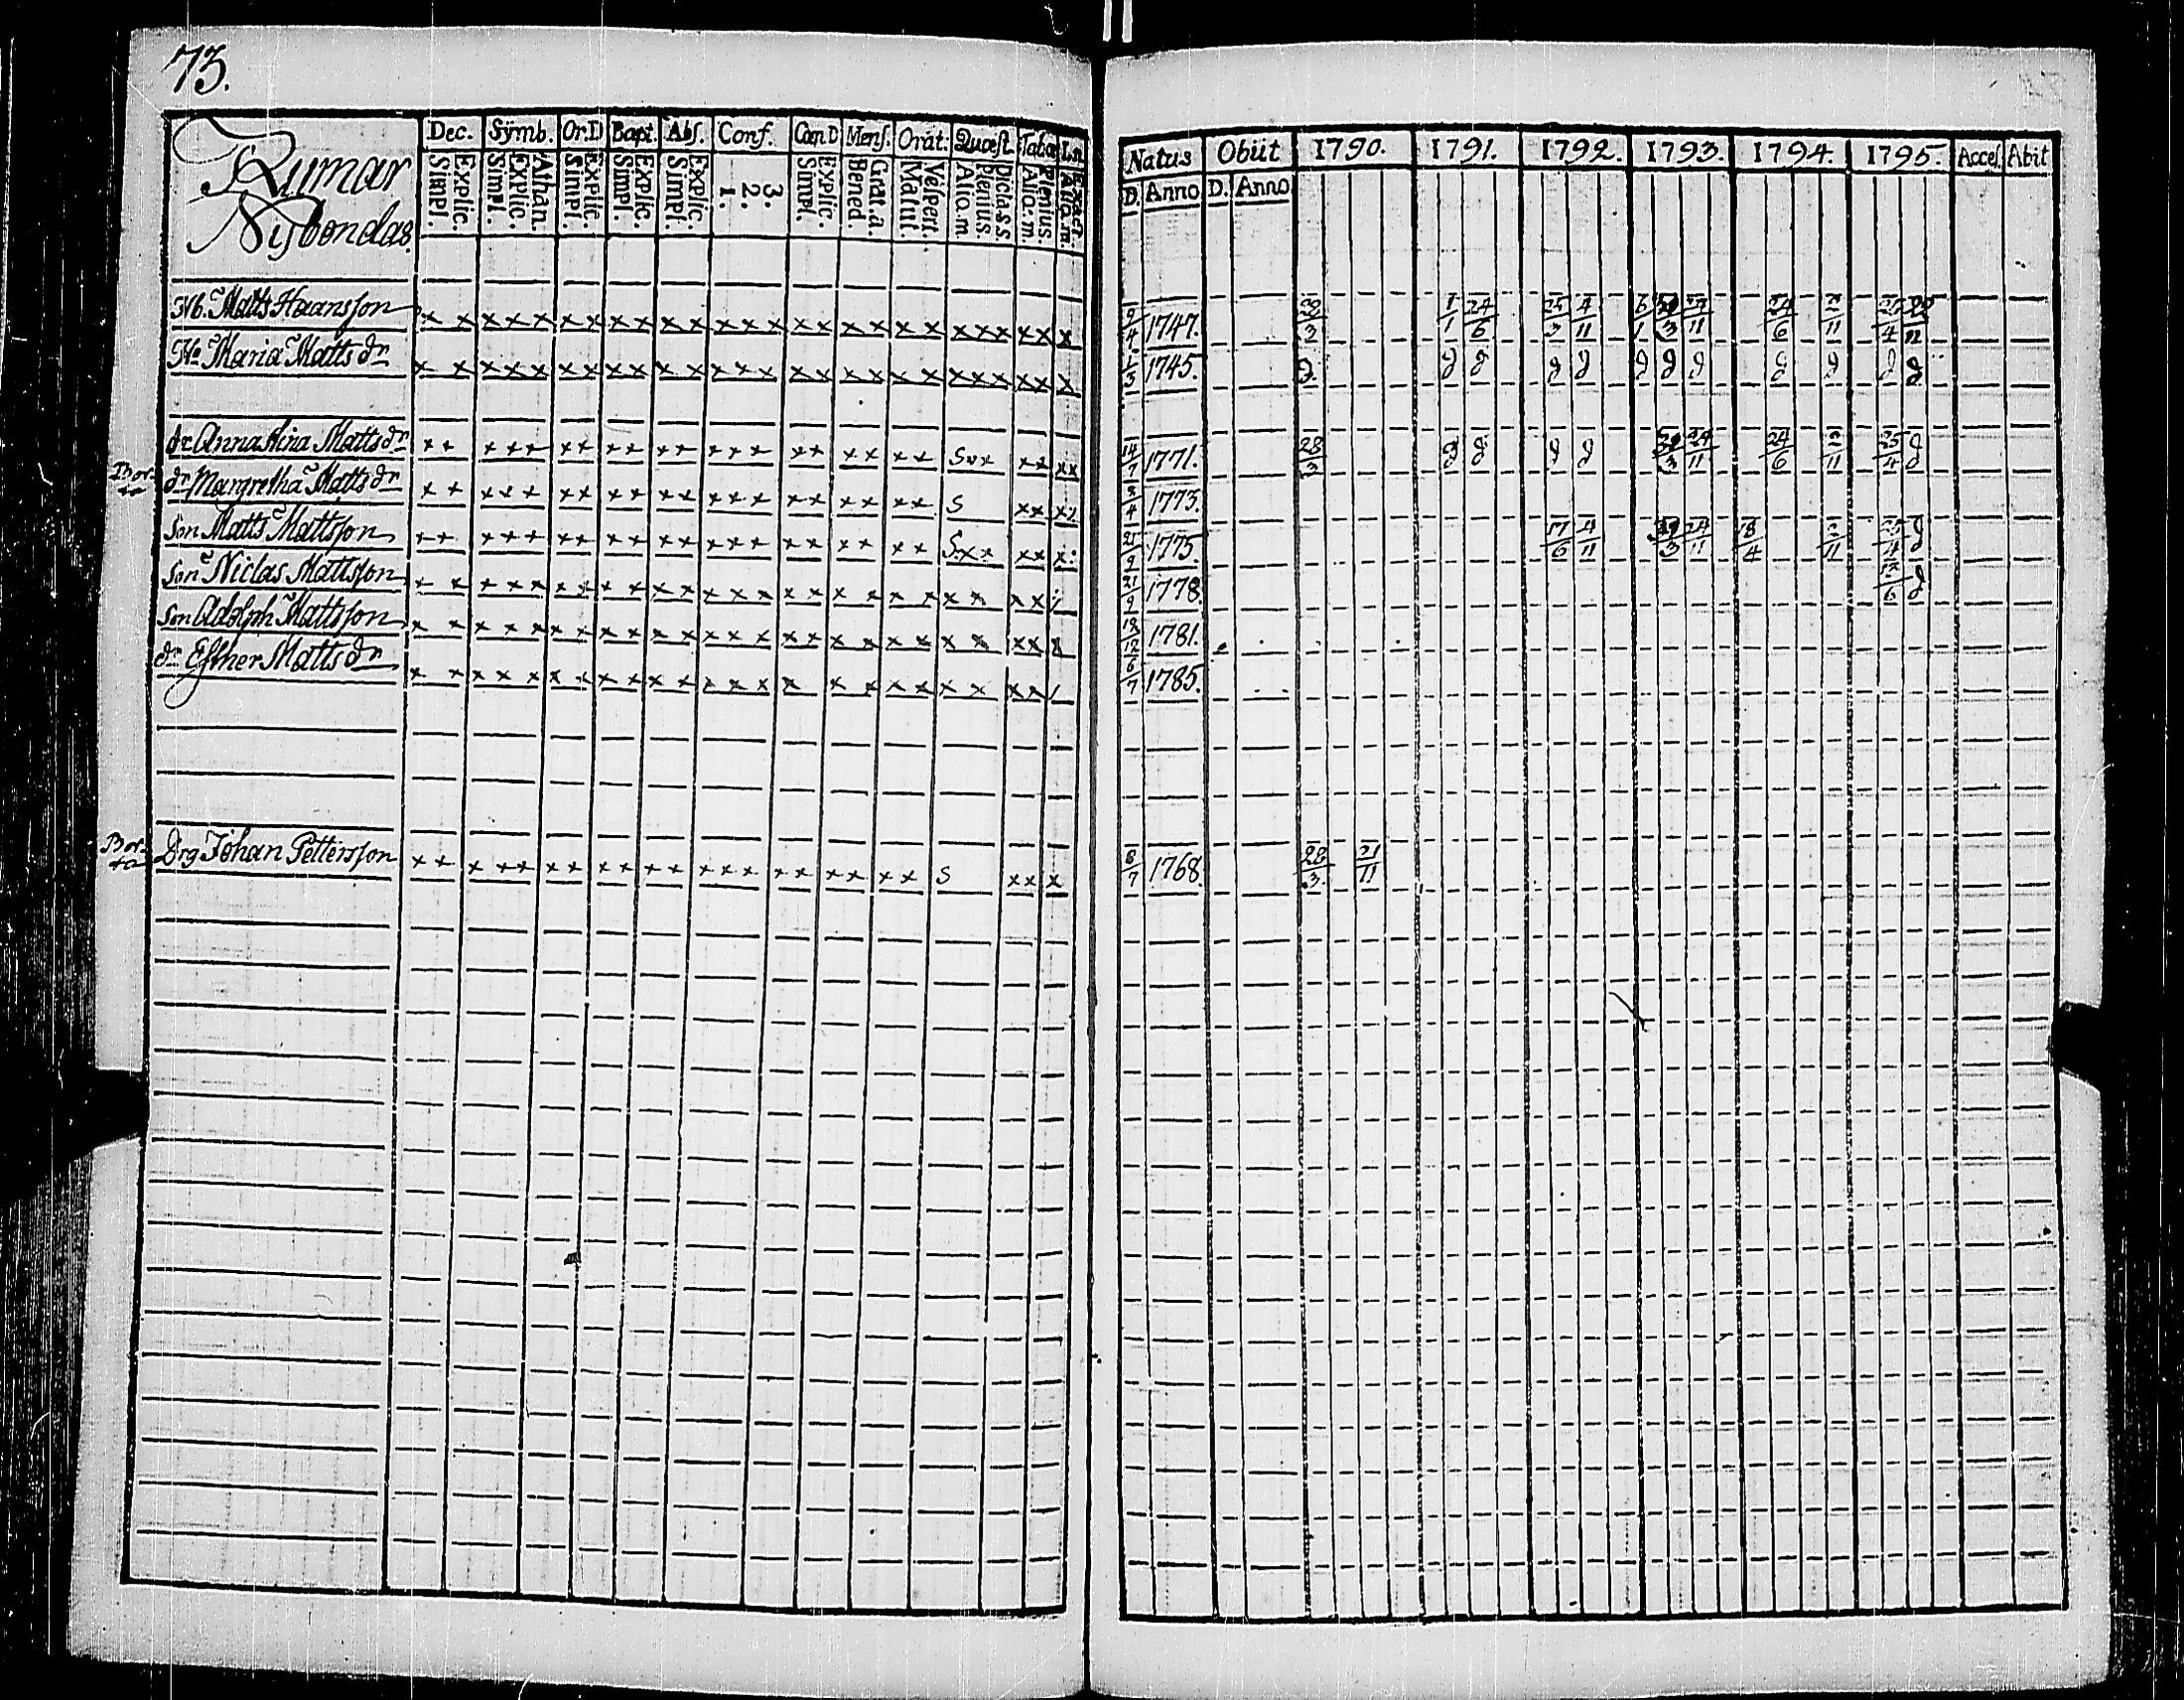 73.
Rumar
Nisbondas.
Dec. Symb. Or.D Bapt. Abs. Conf. Cœn.D Mens. Orat: Quæst. Tabœ
Simpl. Explic. Simpl. Explic. Athan. Simpl. Explic. Simpl. Explic. Simpl. Explic. 1. 2. 3. Simpl. Explic. Bened. Grat.a. Matut. Vespert. Aliq.m. Plenius. Dicta s.s. Aliq:m. Plenius. Aliq.m. Exact.
Natus Obiit 1790. 1791. 1792. 1793. 1794. 1795. Acces. Abit
D. Anno D. Anno
Matts Haansson x x x x x x x x x x x x x x x x x x x x x x x x x x x 9/4 1747. 28/3 1/1 24/6 25/3 4/11 6/1 24/11 24/6 2/11 25/4
H. Maria Matts dr x x x x x x x x x x x x x x x x x x x x x x x x x x x 1/3 1745.
dr Anna Stina Matts dr x x x x x x x x x x x x x x x x x x x x S x x x x x x 14/7 1771. 28/3 24/11 24/6 2/11 25/4
Bor- dr Margretha Matts dr x x x x x x x x x x x x x x x x x x x x S x x 3/4 1773.
Son Matts Mattsson x x x x x x x x x x x x x x x x x x x x S. x x x x x 21/9 1775. 17/6 4/11 24/11 18/4 2/11 25/4
Son Niclas Mattsson x x x x x x x x x x x x x x x x x x x x x x x x 21/9 1778.
son Adolph Mattsson x x x x x x x x x x x x x x x x x x x x x x x x 18/12 1781.
dr Esther Matts dr x x x x x x x x x x x x x x x x x x x x x x x 6/7 1785.
Bor- Drg Johan Pettersson x x x x x x x x x x x x x x x x x x x x S x x x 8/7 1768. 28/3. 21/11